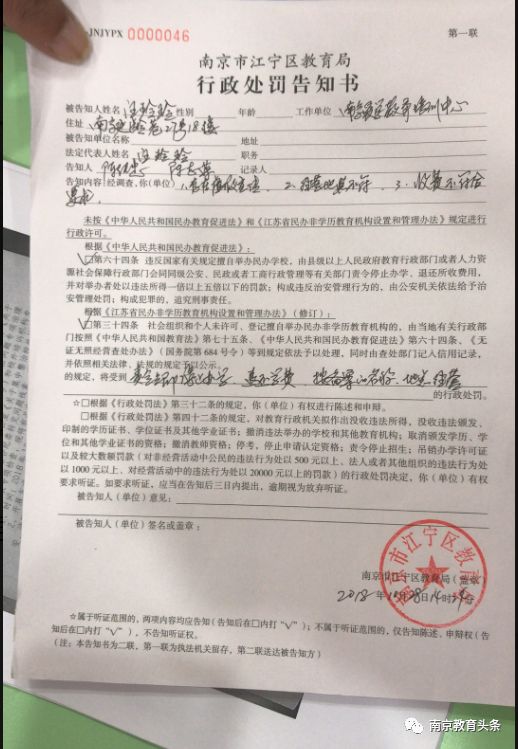 JNJYPX 0000046 第一联
南京市江宁区教育局
行政处罚告知书
被告知人姓名 性别 年龄 工作单位
住址
被告知单位名称 地址
法定代表人姓名 职务
告知人 记录人
告知内容：经调查，你(单位) 3.收费不符合
要求
未按《中华人民共和国民办教育促进法》和《江苏省民办非学历教育机构设置和管理办法》规定进行
行政许可。
根据《中华人民共和国民办教育促进法》：
☑第六十四条 违反国家有关规定擅自举办民办学校，由县级以上人民政府教育行政部门或者人力资
源社会保障行政部门会同同级公安、民政或者工商行政管理等有关部门责令停止办学、退还所收费用，
并对举办者处以违法所得一倍以上五倍以下的罚款；构成违反治安管理行为的，由公安机关依法给予治
安管理处罚；构成犯罪的，追究刑事责任。
根据《江苏省民办非学历教育机构设置和管理办法》(修订)：
☑第三十四条 社会组织和个人未许可、登记擅自举办民办非学历教育机构的，由当地有关行政部
门按照《中华人民共和国教育法》第七十五条、《中华人民共和国民办教育促进法》第六十四条、《无
证无照经营查处办法》(国务院第 684 号令)等到规定依法予以处理，同时由查处部门记入信用记录，
并依照相关法律、法规的规定予以公示。
的规定，将受到
的行政处罚。
☆□根据《行政处罚法》第三十二条的规定，你(单位)有权进行陈述和申辩。
□根据《行政处罚法》第四十二条的规定，对教育行政机关拟作出没收违法所得，没收违法颁发、
印制的学历证书、学位证书及其他学业证书；撤消违法举办的学校和其他教育机构；取消颁发学历、学
位和其他学业证书的资格；撤消教师资格；停考，停止申请认定资格；责令停止招生；吊销办学许可证
以及较大数额罚款(对非经营活动中公民的违法行为处以 500 元以上、法人或者其他组织的违法行为处
以 1000 元以上、对经营活动中的违法行为处以 20000 元以上的罚款)的行政处罚决定，你(单位)有权
要求听证。如要求听证，应当在告知后三日内提出，逾期视为放弃听证。
被告知人(单位)意见：
被告知人(单位)签名或盖章：
南京市江宁区教育局
南京市江宁区教育局(盖章)
2018年
☆属于听证范围的，两项内容均应告知(告知后在□内打“√”)；不属于听证范围的，仅告知陈述、申辩权(告
知后在□内打“√”)，不告知听证权。
(注：本告知书为二联，第一联为执法机关留存，第二联送达被告知方)
南京教育头条